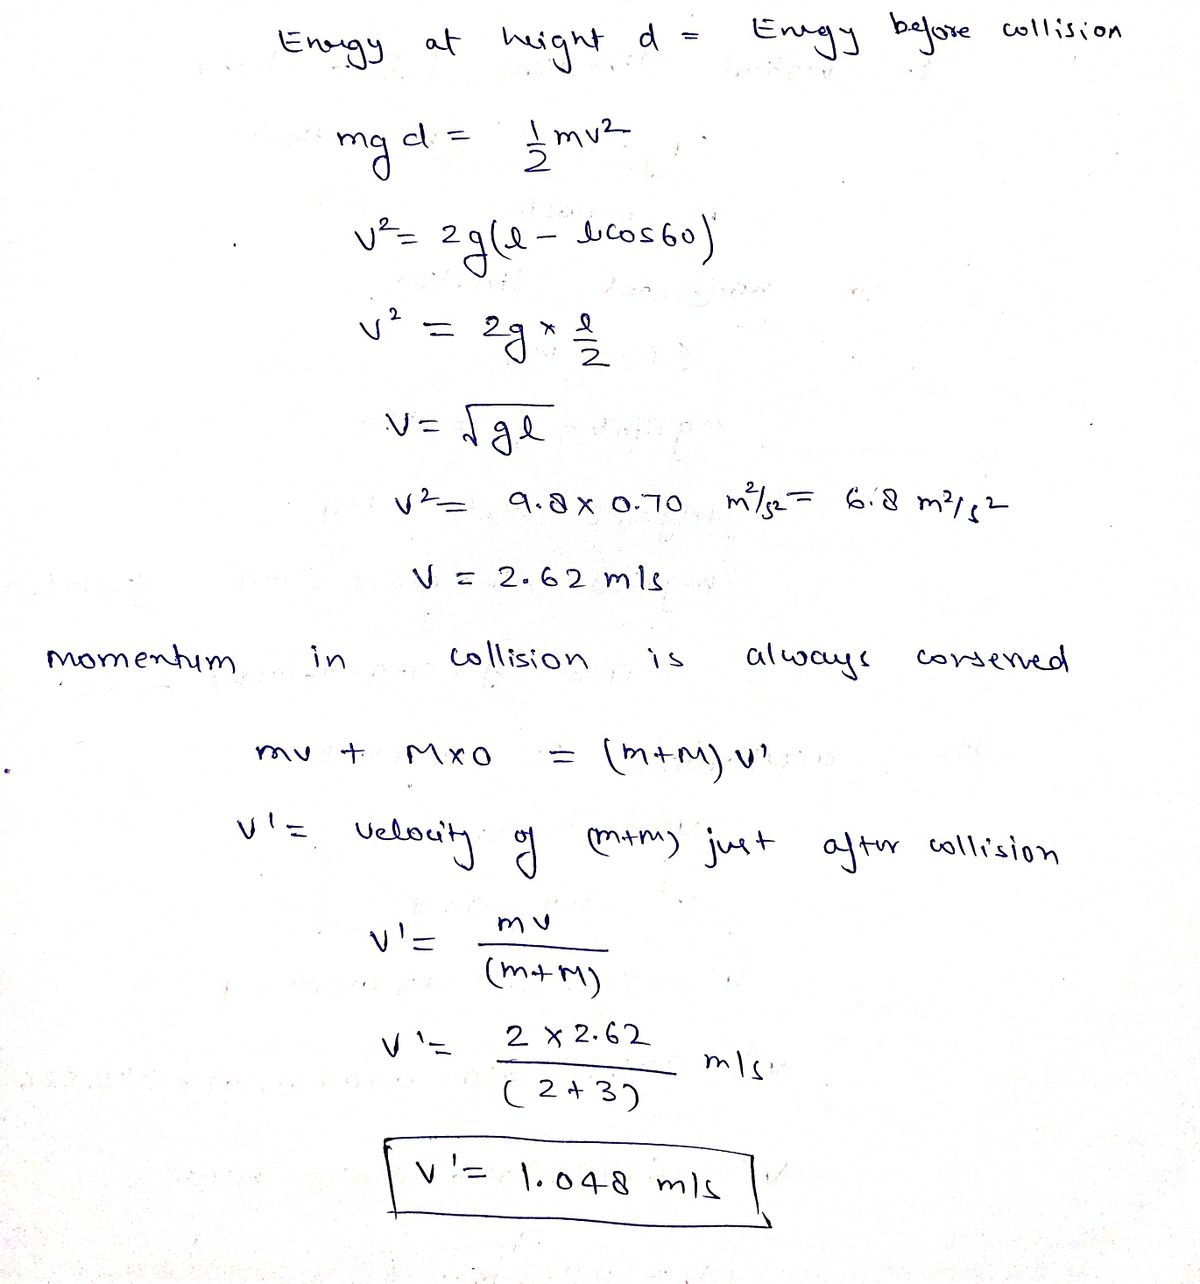 Energy at height d = Energy before collision
mgd = 1/2 mv²
v² = 2g(l - lcos60)
v² = 2g × l/2
v = √gl
v² = 9.8 × 0.70 m²/s² = 6.8 m²/s²
v = 2.62 m/s
momentum in collision is always conserved
mv + M×0 = (m+M) v'
v' = velocity of (m+m) just after collision
v' = mv/(m+M)
v' = 2 × 2.62/(2+3) m/s
v' = 1.048 m/s